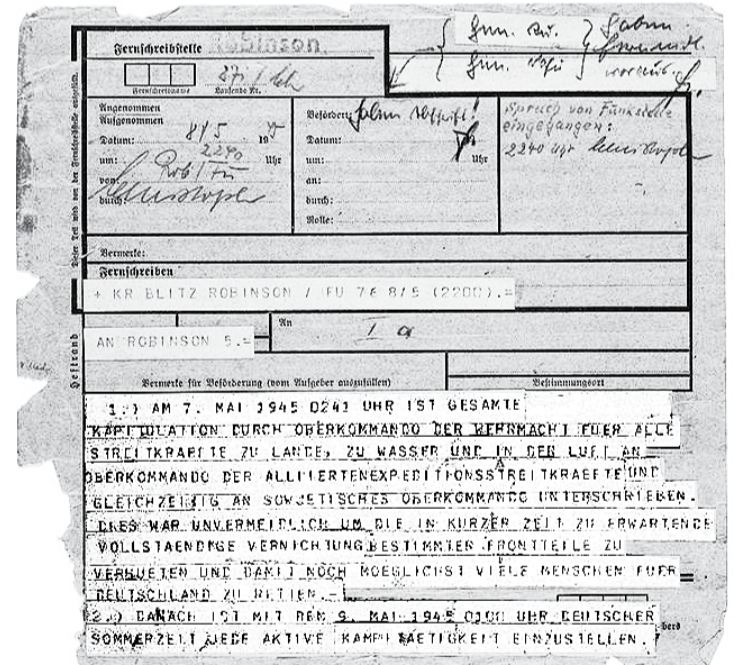 Fernschreibstelle Robinson.
Fernschreibname Laufende Nr.
Angenommen
Aufgenommen
Datum: 8/5 19
um: 2240 Uhr
von:
durch:
Befördert:
Datum:
um: Uhr
an:
durch:
Rolle:
Spruch von Funkstelle
eingegangen:
2240 Uhr
Vermerke:
Fernschreiben
+ KR BLITZ ROBINSON / FU 76 8/5 (2200).=
An I a
AN ROBINSON 5.=
Vermerke für Beförderung (vom Aufgeber auszufüllen) Bestimmungsort
1.) AM 7. MAI 1945 0241 UHR IST GESAMTE
KAPITULATION DURCH OBERKOMMANDO DER WEHRMACHT FUER ALLE
STREITKRAEFTE ZU LANDE, ZU WASSER UND IN DER LUFT AN
OBERKOMMANDO DER ALLIIERTENEXPEDITIONSSTREITKRAEFTE UND
GLEICHZEITIG AN SOWJETISCHES OBERKOMMANDO UNTERSCHRIEBEN.
DIES WAR UNVERMEIDLICH UM DIE IN KURZER ZEIT ZU ERWARTENDE
VOLLSTAENDIGE VERNICHTUNG BESTIMMTER FRONTTEILE ZU
VERHUETEN UND DAMIT NOCH MOEGLICHST VIELE MENSCHEN FUER
DEUTSCHLAND ZU RETTEN.-
2.) DANACH IST MIT DEM 9. MAI 1945 0100 UHR DEUTSCHER
SOMMERZEIT JEDE AKTIVE KAMPFTAETIGKEIT EINZUSTELLEN.
Heftrand